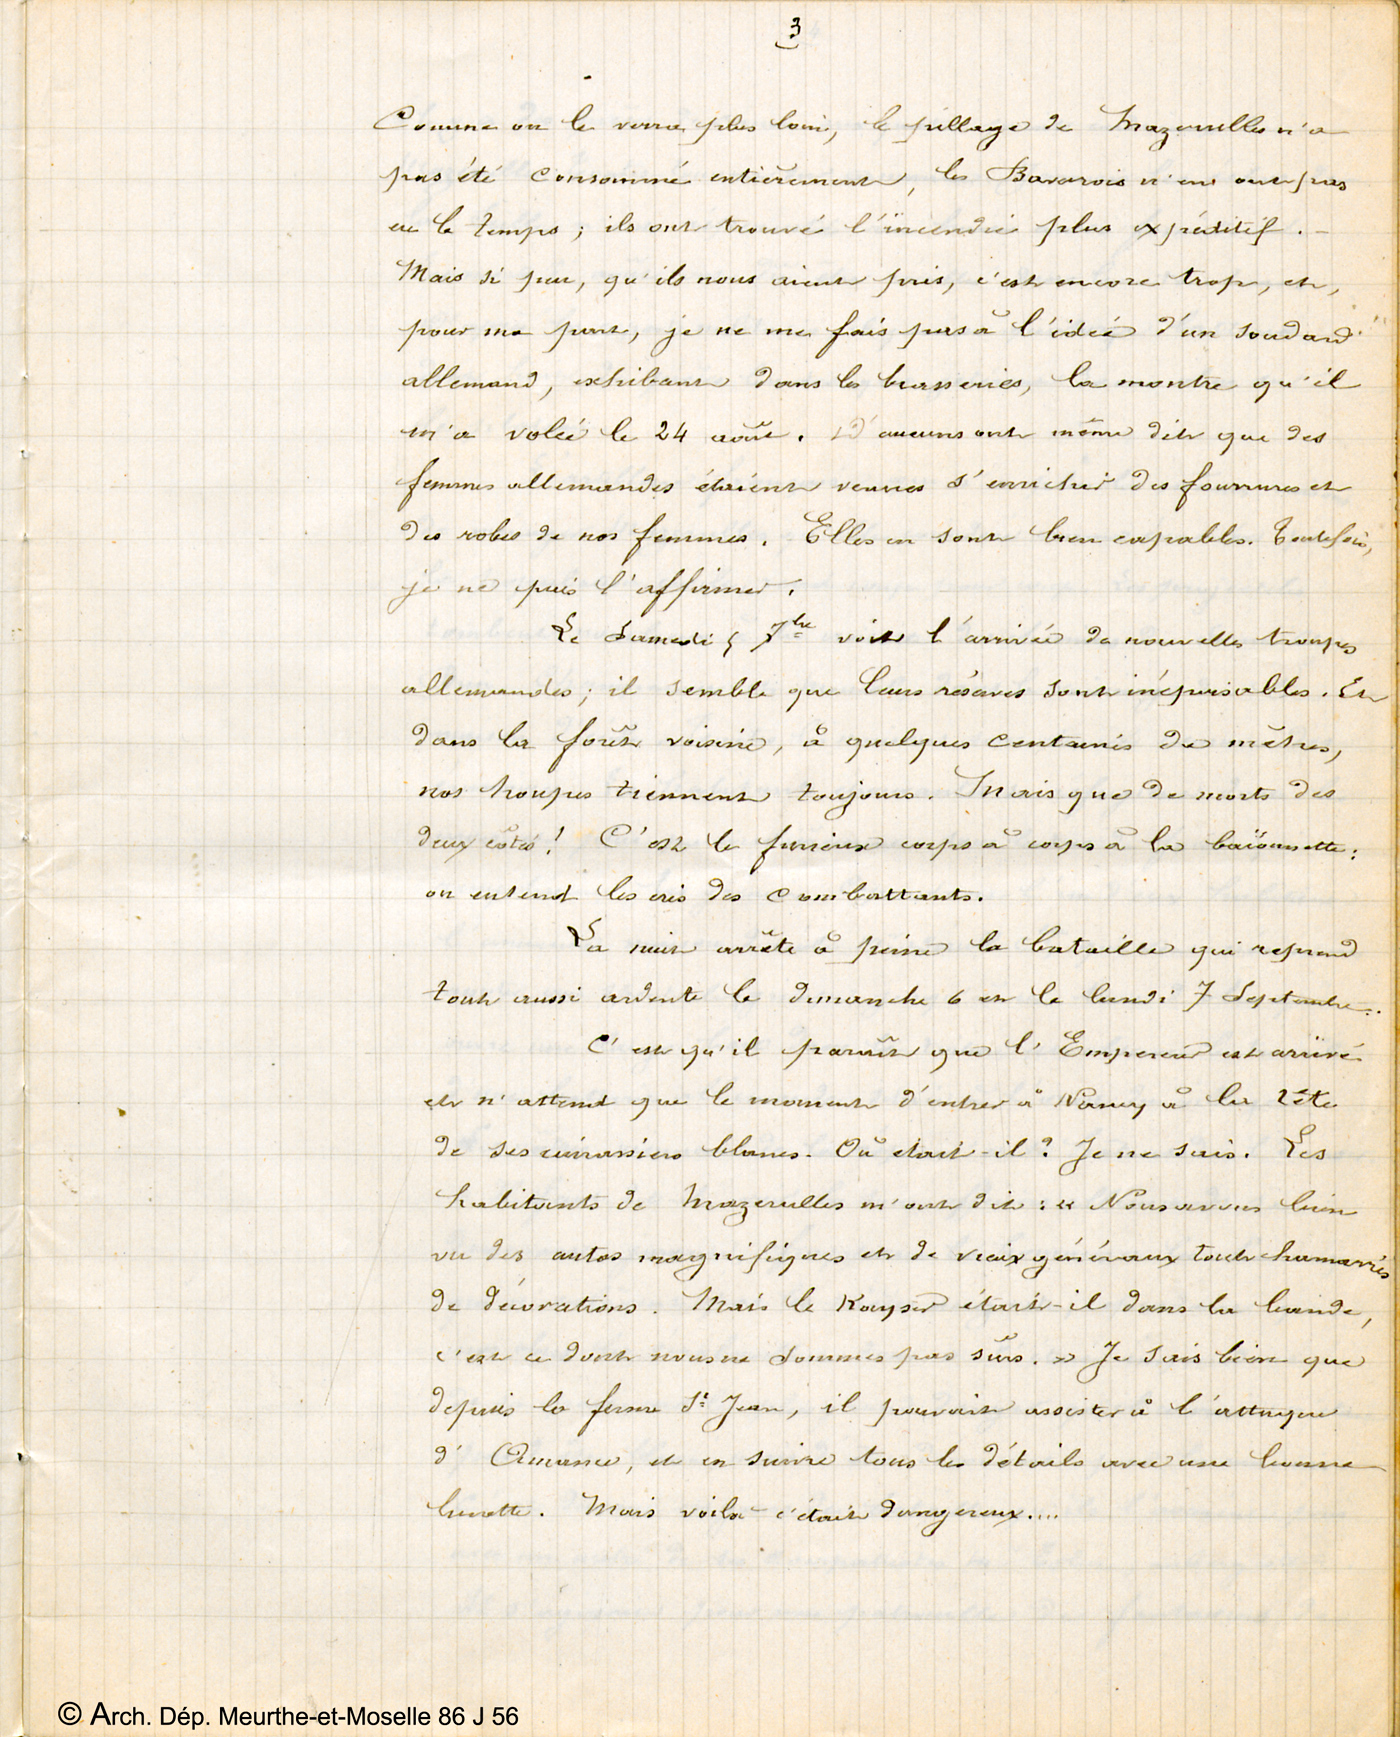 3
Comme on le verra plus loin, le pillage de Mazerulles n'a
pas été consommé entièrement, les Bavarois n'en ont pas
eu le temps ; ils ont trouvé l'incendie plus expéditif. -
Mais si peu, qu'ils nous aient pris, c'est encore trop, et,
pour ma part, je ne me fais pas à l'idée d'un soudard
allemand, exhibant dans les brasseries, la montre qu'il
m'a volée le 24 août. D'aucuns ont même dit que des
femmes allemandes étaient venues s'enrichir des fourrures et
des robes de nos femmes. Elles en sont bien capables. Toutefois,
je ne puis l'affirmer.
Le Samedi 5 7bre voit l'arrivée de nouvelles troupes
allemandes ; il semble que leurs réserves sont inépuisables. Et
dans la forêt voisine, à quelques centaines de mètres,
nos troupes tiennent toujours. Mais que de morts des
deux côtés ! C'est le furieux corps à corps à la baïonnette :
on entend les cris des combattants.
La nuit arrête à peine la bataille qui reprend
tout aussi ardente le dimanche 6 et le lundi 7 Septembre.
C'est qu'il paraît que l'Empereur est arrivé
et n'attend que le moment d'entrer à Nancy à la tête
de ses cuirassiers blancs. Où était-il ? Je ne sais. Les
habitants de Mazerulles m'ont dit : « Nous avons bien
vu des autos magnifiques et de vieux généraux tout chamarrés
de décorations. Mais le Kayser était-il dans la bande,
c'est ce dont nous ne sommes pas sûrs. » Je sais bien que
depuis la ferme St Jean, il pouvait assister à l'attaque
d'Amance, et en suivre tous les détails avec une bonne
lunette. Mais voilà c'était dangereux....
© Arch. Dép. Meurthe-et-Moselle 86 J 56